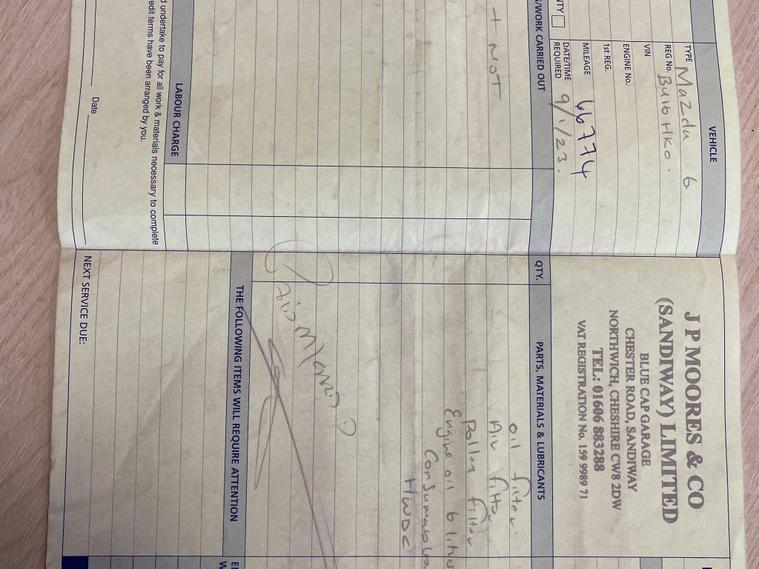 VEHICLE
TYPE Mazda 6
REG No. BU16 HKO.
VIN
ENGINE No.
1st REG.
MILEAGE 66774
DATE/TIME REQUIRED 9/1/23.
NTY
G/WORK CARRIED OUT
+ NOT
LABOUR CHARGE
d undertake to pay for all work & materials necessary to complete
edit terms have been arranged by you.
Date
J P MOORES & CO
(SANDIWAY) LIMITED
BLUE CAP GARAGE
CHESTER ROAD, SANDIWAY
NORTHWICH, CHESHIRE CW8 2DW
TEL: 01606 883288
VAT REGISTRATION No. 159 9989 71
QTY. PARTS, MATERIALS & LUBRICANTS
oil filter.
Air filter
Pollen filter
Engine oil 6 litre
Consumables
HWDC
THE FOLLOWING ITEMS WILL REQUIRE ATTENTION
NEXT SERVICE DUE: